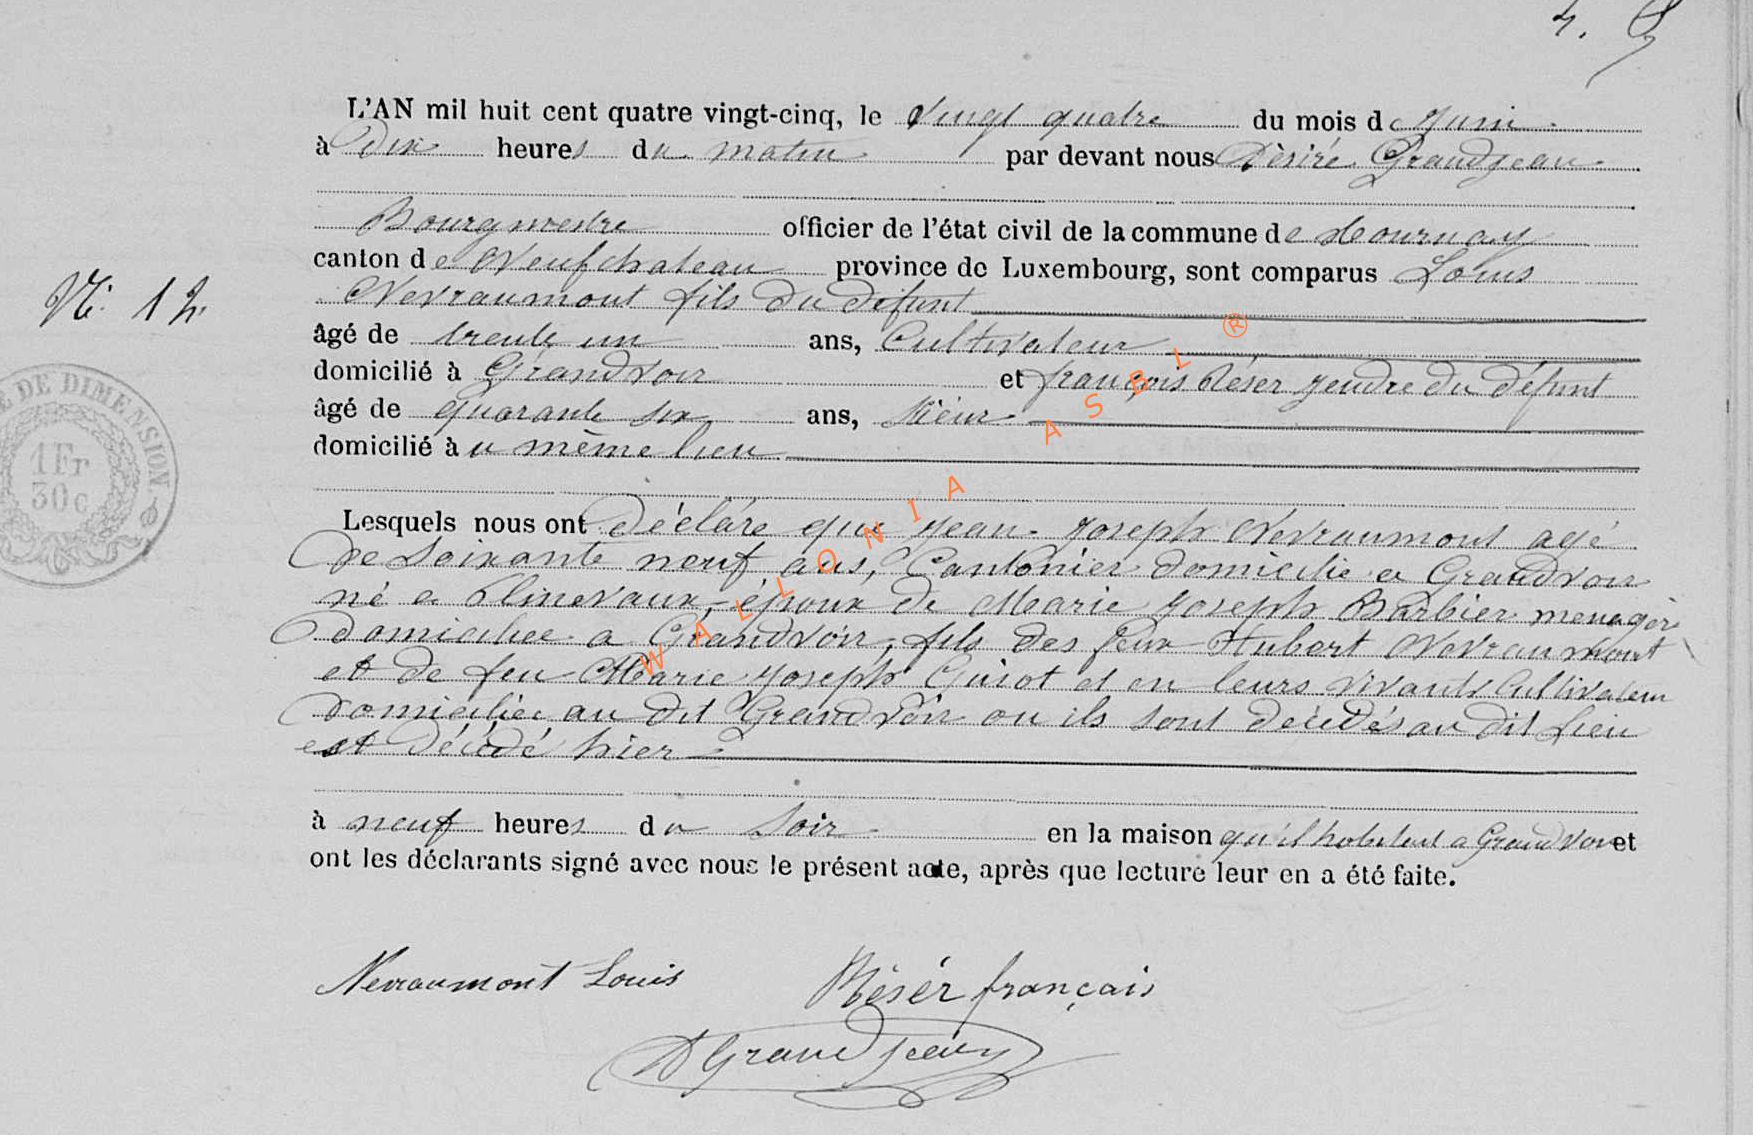 4.
L'AN mil huit cent quatre vingt-cinq, le Vingt quatre du mois de Juin
à Dix heures du matin par devant nous Désiré Grandjean
Bourgmestre officier de l'état civil de la commune de Tournay
canton de Neufchateau province de Luxembourg, sont comparus Louis
Nevraumont fils du défunt
âgé de trente un ans, Cultivateur
domicilié à Grandvoir et françois Réser gendre du défunt
âgé de quarante six ans,
domicilié à u même lieu
N° 12
E DE DIMENSION.
1Fr
30c
Lesquels nous ont Déclaré que Jean Joseph Nevraumont agé
de Soixante neuf ans, Cantonier domicilie a Grandvoir
né a Olinevaux, époux de Marie Joseph Barbier menagère
domiciliee a Grandvoir, fils des feux Hubert Nevraumont
et de feu Marie Joseph Guiot et en leurs vivants Cultivateur
domiciliée au dit Grandvoir ou ils sont décédés au dit lieu
est décédé hier
à neuf heures du Soir en la maison qu'il habitait a Grandvoir et
ont les déclarants signé avec nous le présent acte, après que lecture leur en a été faite.
Nevraumont Louis Résér françois
D Grandjean
WALLONIA ASBL ®